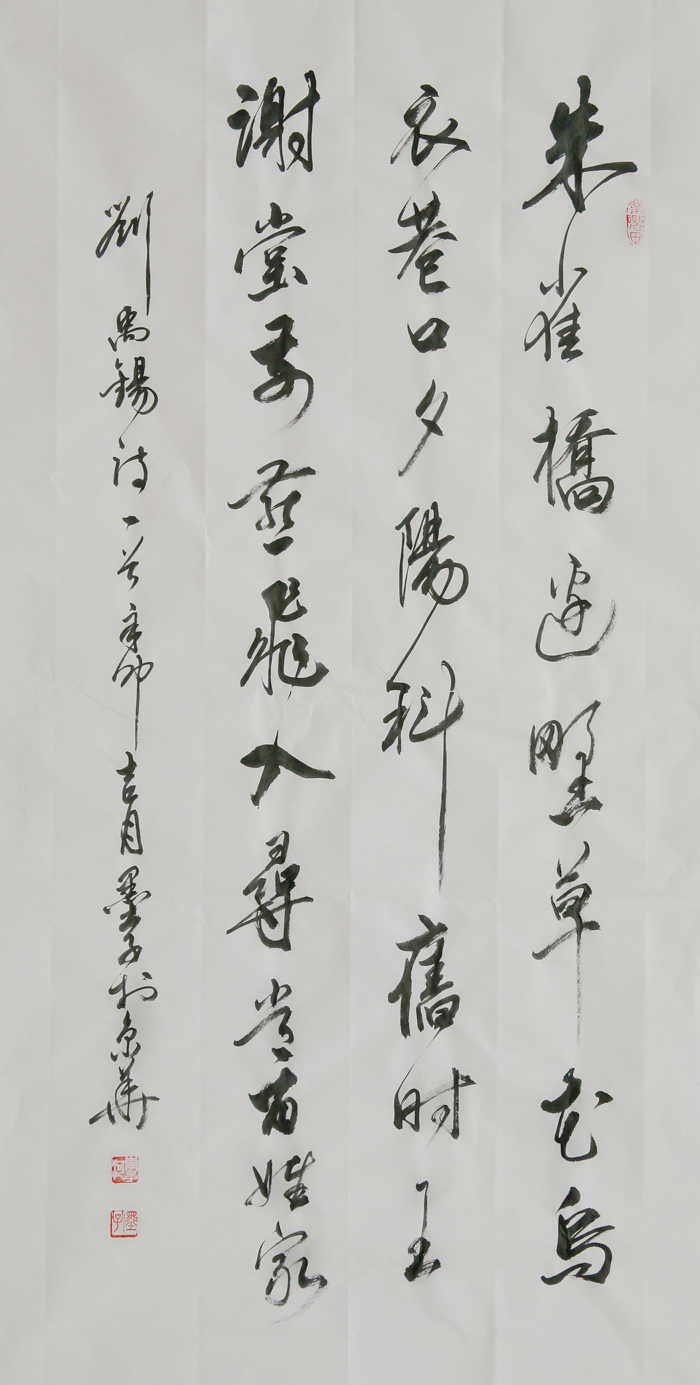 朱雀橋邊野草花烏
衣巷口夕陽斜舊时王
謝堂前燕飛入尋常百姓家
劉禹錫詩一首辛卯吉月墨子於京華